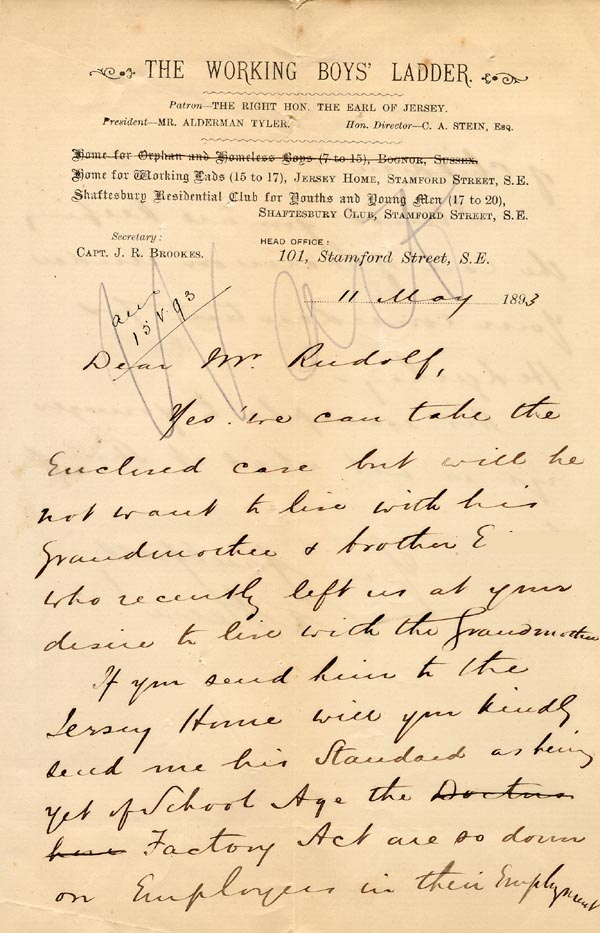 THE WORKING BOYS' LADDER.
Patron—THE RIGHT HON. THE EARL OF JERSEY.
President—MR. ALDERMAN TYLER. Hon. Director—C. A. STEIN, Esq.
Home for Orphan and Homeless Boys (7 to 15), BOGNOR, SUSSEX.
Home for Working Lads (15 to 17), JERSEY HOME, STAMFORD STREET, S.E.
Shaftesbury Residential Club for Youths and Young Men (17 to 20),
SHAFTESBURY CLUB, STAMFORD STREET, S.E.
Secretary:
CAPT. J. R. BROOKES.
HEAD OFFICE:
101, Stamford Street, S.E.
11 May 1893
15.V.93
Wait
Dear Mr. Rudolf,
Yes! we can take the
Enclosed case but will he
not want to live with his
Grandmother & brother E
who recently left us at your
desire to live with the Grandmother
If you send him to the
Jersey Home will you kindly
send me his Standard as being
yet of School Age the Doctors
have Factory Act are so down
on Employers in their Employment